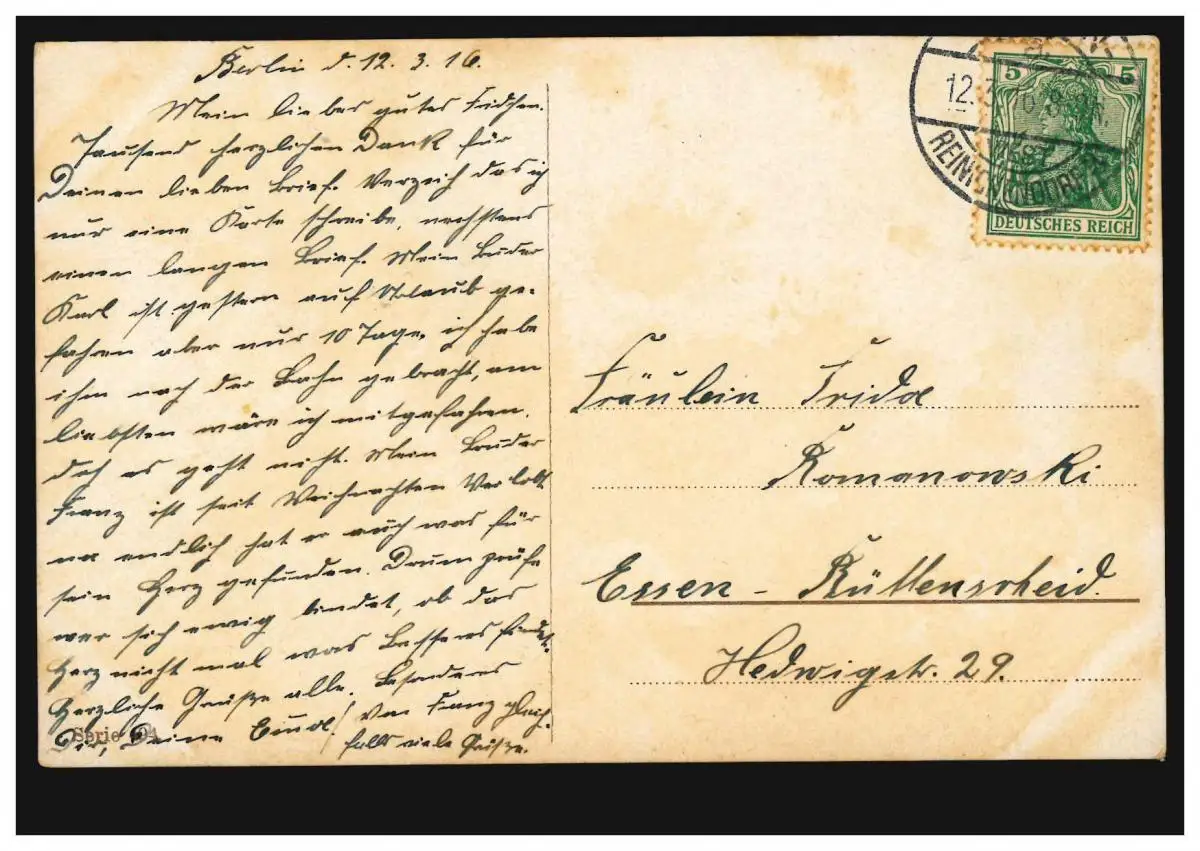 Berlin d. 12. 3. 16.
Mein liebes gutes Fridchen.
Tausend herzlichen Dank für
Deinen lieben Brief. Verzeih das ich
nur eine Karte schreibe, nechstens
einen langen Brief. Mein Bruder
Karl ist gestern auf Urlaub ge-
fahren aber nur 10 Tage, ich habe
ihm nach der Bahn gebracht, am
liebsten wäre ich mitgefahren.
doch es geht nicht. Mein Bruder
Franz ist seit Weihnachten Verlobt
na endlich hat er auch was für
sein Herz gefunden. Drum prüfe
wer sich ewig bindet, ob das
Herz nicht mal was Besseres findet.
Herzliche Grüße alle. Besonders
Dir, Deine
Von Franz gleich-
falls viele Grüße.
Serie
5 5
DEUTSCHES REICH
12.
REINICKENDORF
Fräulein Frida
Romanowski
Essen - Rüttenscheid.
Hedwigstr. 29.